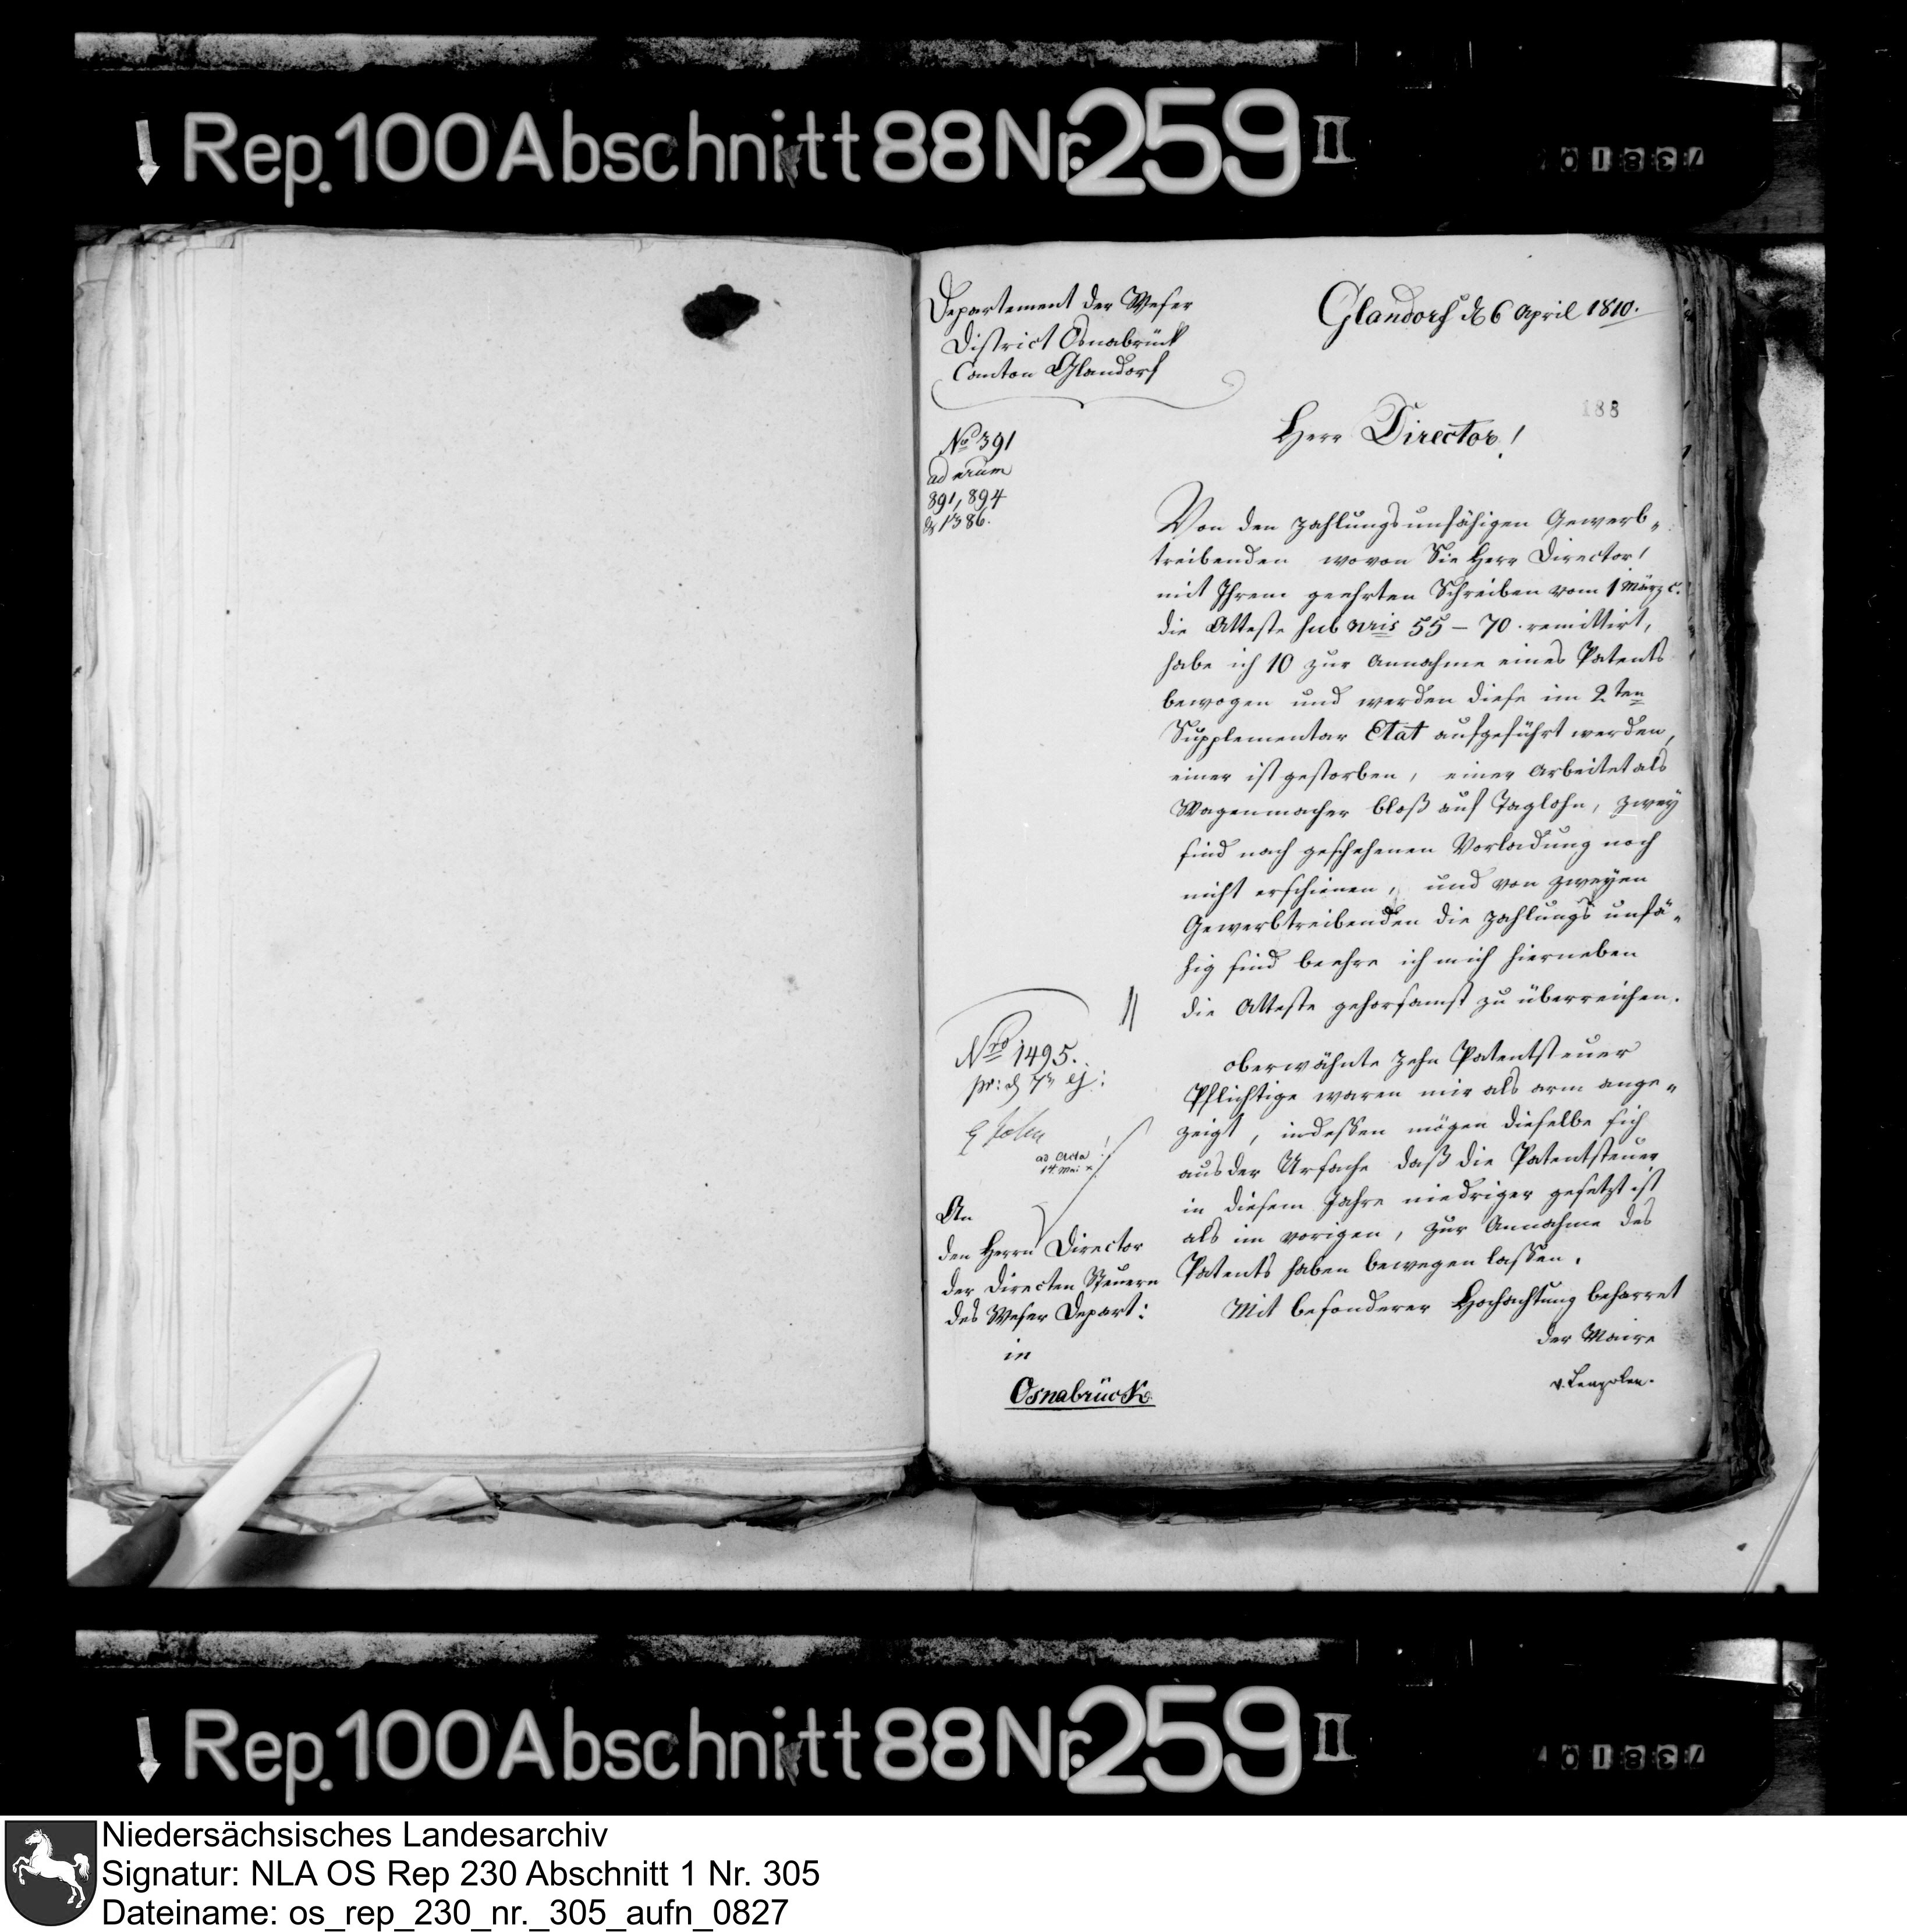 Rep. 100 Abschnitt 88 Nr. 259 II
Departement der Weser
District Osnabrück
Canton Glandorf
Glandorf d 6 April 1810.
188
No 391
ad num
891, 894
& 1386.
Herr Director!
Von den zahlungsunfähigen Gewerb-
treibenden wovon Sie Herr Director!
mit Ihrem geehrten Schreiben vom 1 März c.
die Atteste sub nris 55 – 70. remittirt,
habe ich 10 zur Annahme eines Patents
bewogen und werden diese im 2ten
Supplementar Etat aufgeführt werden,
einer ist gestorben, einer arbeitet als
Wagenmacher bloß auf Taglohn, zwey
sind nach geschehenen Vorladung noch
nicht erschienen, und von zweyen
Gewerbtreibenden die zahlungs unfä-
hig sind beehre ich mich hierneben
die Atteste gehorsamst zu überreichen.
oberwähnte zehn Patentsteuer
Pflichtige waren mir als arm ange-
zeigt, indessen mögen dieselbe sich
aus der Ursache daß die Patentsteuer
in diesem Jahre niedriger gesetzt ist
als im vorigen, zur Annahme des
Patents haben bewegen lassen.
Mit besonderer Hochachtung beharret
der Maire
Nro 1495.
pr: d 7n ej:
ad acta
14 Mai
An
den Herrn Director
der directen Steuern
des Weser Depart:
in
Osnabrück
Rep. 100 Abschnitt 88 Nr. 259 II
Niedersächsisches Landesarchiv
Signatur: NLA OS Rep 230 Abschnitt 1 Nr. 305
Dateiname: os_rep_230_nr._305_aufn_0827